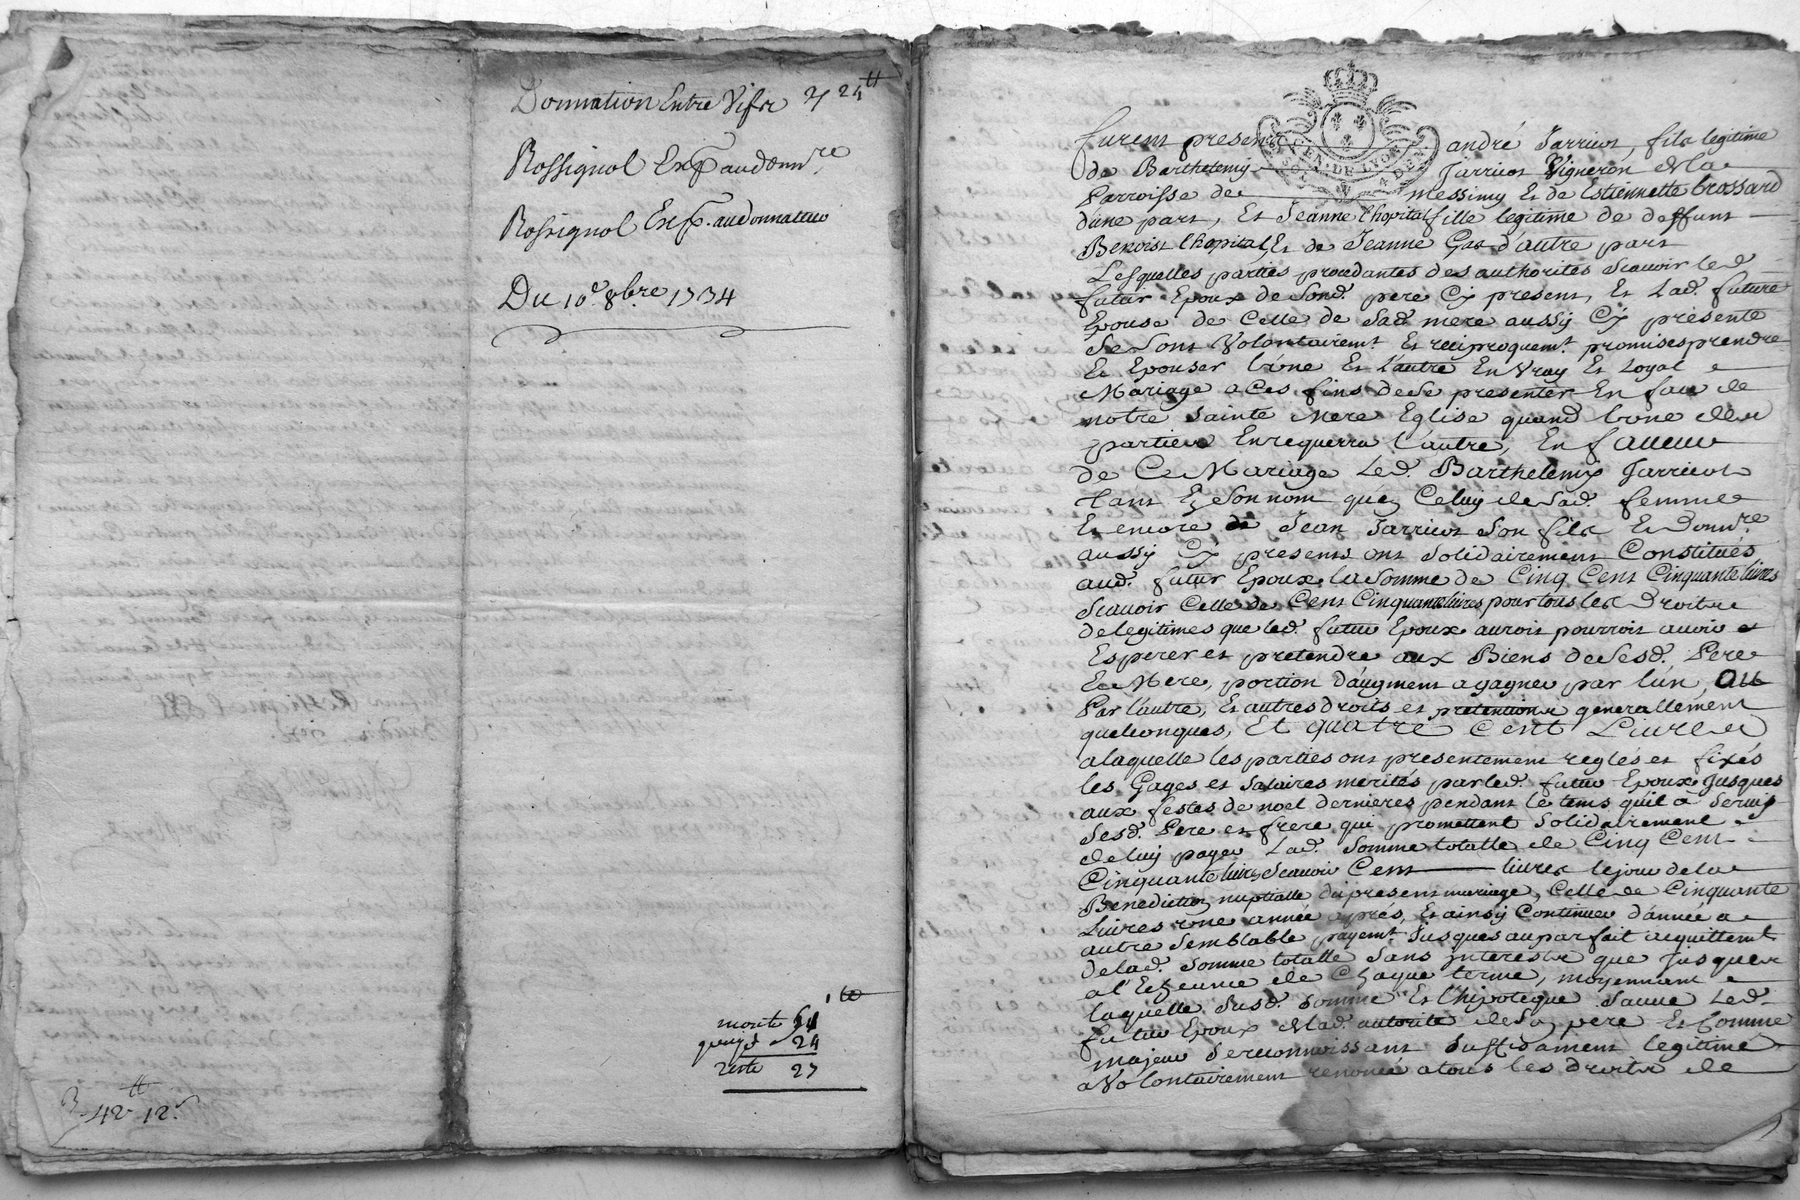 Donnation Entre Vifs
24 tt
Rossignol Exp. aud donn.re
Rossignol Exp. au donnateur
Du 10e 8bre 1734
monte 51
24
reste 27
42 tt 12 s
furent presents andré Jarricot, fils legitime
de Barthelemy Jarricot Vigneron de la
Parroisse de Messimy Et de Estiennette brossard
d'une part, Et Jeanne lhopital fille legitime de deffunt
Benoist lhopital Et de Jeanne Gas d'autre part
Lesquelles parties procedantes des authorités scauoir led.
futur Epoux de Sond. pere Cy present, Et Lad. future
Epouse de Celle de Sad. mere aussy Cy presente
Se sont Volontairemt. Et reciproquemt. promises prendre
Et Epouser l'une Et L'autre En Vray Et Loyal
Mariage a Ces fins de Se presenter En face de
notre Sainte Mere Eglise quand l'une des
parties En requerra l'autre, En faueur
de Ce Mariage Led. Barthelemy Jarricot
tant En Son nom qu'en Celuy de Sad. femme
Et encore de Jean Jarricot Son fils Et Donn.re
aussy Cy presents ont Solidairement Constitués
aud. futur Epoux la Somme de Cinq Cent Cinquante liures
Scauoir Celle de Cent Cinquante liures pour tous les Droits
de legitimes que led. futur Epoux auroit pourroit auoir
Esperer et pretendre aux Biens de Sesd. Pere
Et Mere, portion d'augment a gagner par l'un, ou
Par l'autre, Et autres droits et pretentions generallement
quelconques, Et quatre Cent Liures
a laquelle les parties ont presentement reglés et fixés
les Gages et Salaires merités par led. futur Epoux Jusques
aux festes de noel dernieres pendant le tems qu'il à Seruy
Sesd. Pere et frere qui promettent Solidairement
de luy payer Lad. Somme totalle de Cinq Cent
Cinquante liures Scauoir Cent liures le jour de la
Benediction nuptialle du present mariage, Celle de Cinquante
Liures une année après, Et ainsy Continuer d'année a
autre Semblable payemt. Jusques au parfait acquittemt.
de lad. Somme totalle Sans interests que Jusques
a l'Echeance de Chaque terme, moyennant
laquelle Susd. Somme Et l'hipoteque Sauue Led.
futur Epoux de lad. autorité de Son pere Et Comme
majeur Se reconnoissant Suffisament legitimé
a Volontairement renoncé a tous les droits de